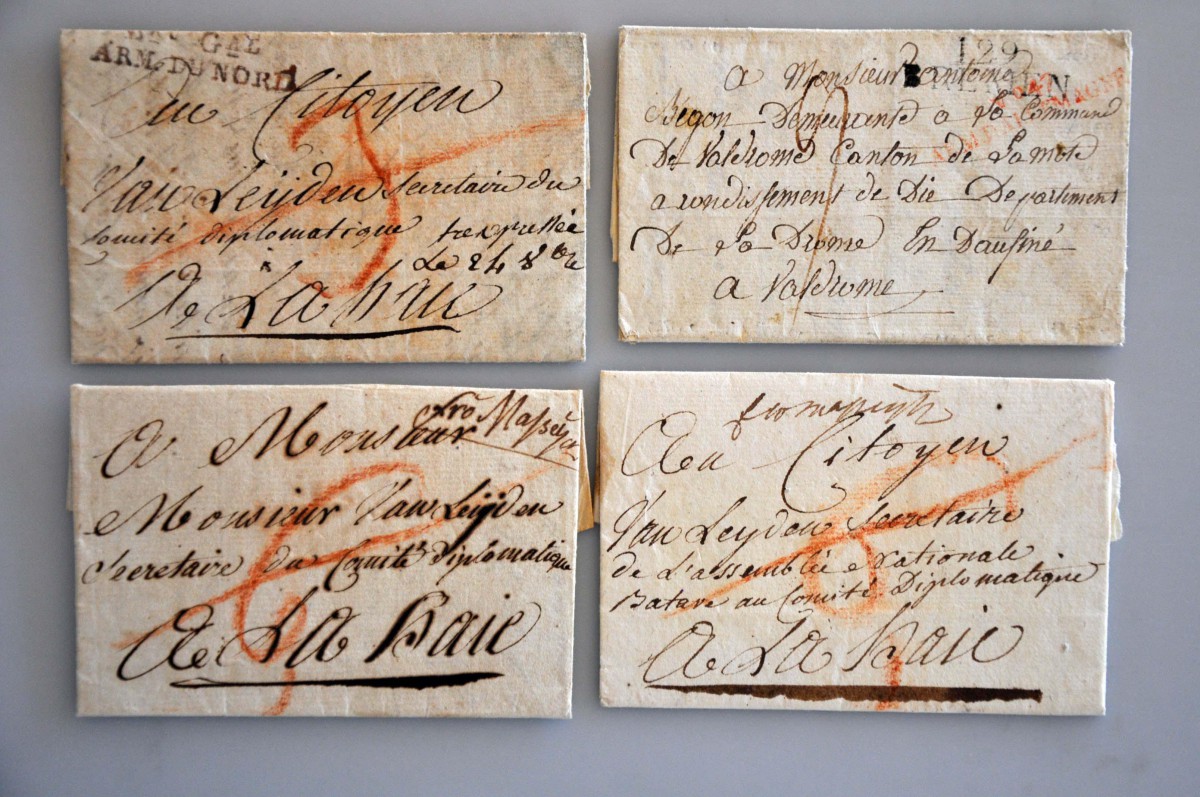 GAL
ARM. DU NORD
Au Citoyen
Van Leÿden Secretaire du
Comité diplomatique
Le 24 8bre
A La haie
129
BREMEN
a Monsieur antoine
Begon Demeurente a La Commune
De Valdrome Canton de Lamote
arondissement de Die Departement
De La Drome En Daufiné
a Valdrome
A Monsieur
Monsieur Van Leÿden
Secretaire du Comité diplomatique
A La haie
Au Citoyen
Van Leyden Secretaire
de L'assemblée Nationale
Batave au Comité Diplomatique
A La haie